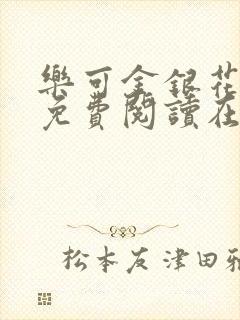 樂可金銀花
免費閱讀在
松本友津田雅